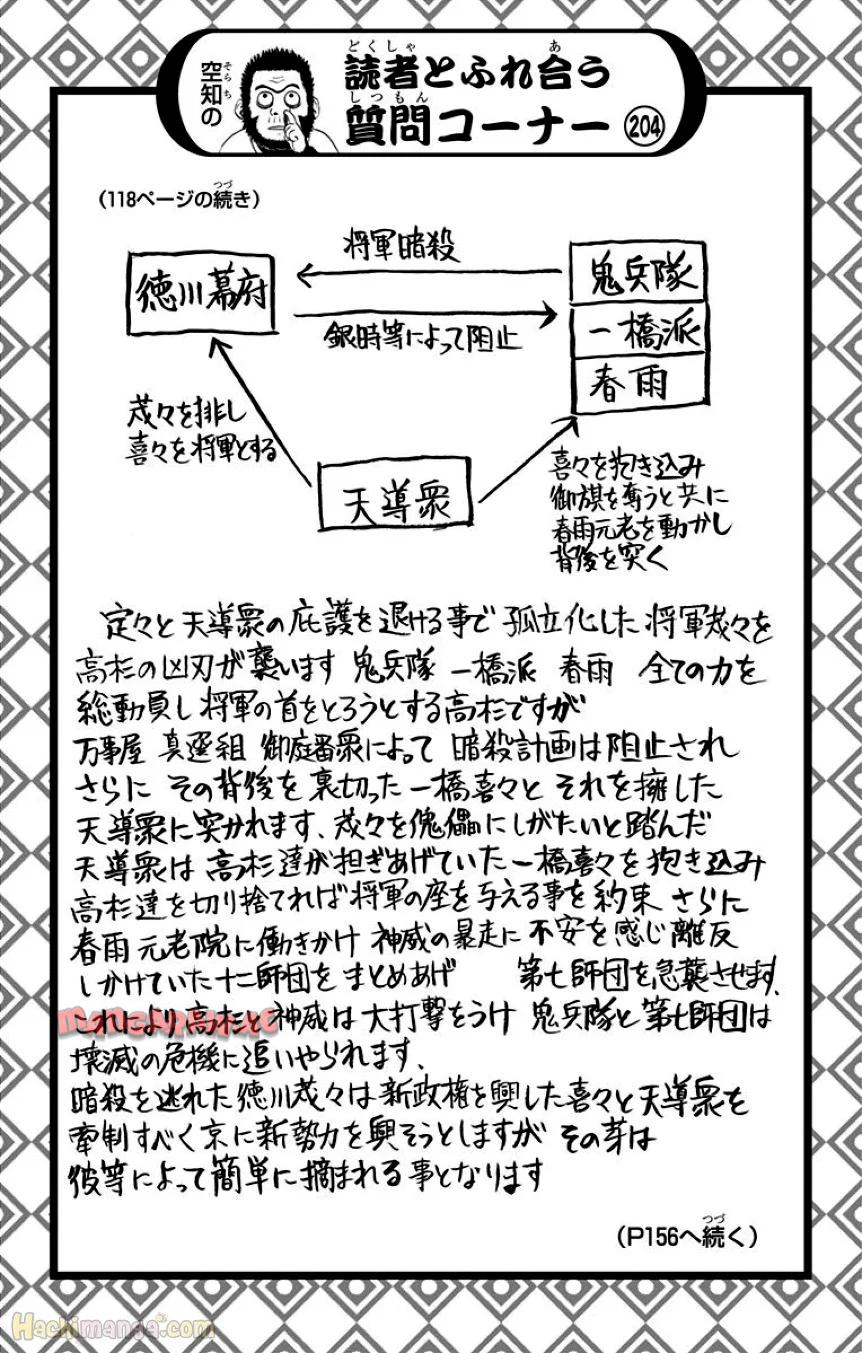 空知の
読者とふれ合う
質問コーナー 204
(118ページの続き)
将軍暗殺
徳川幕府
鬼兵隊
一橋派
春雨
銀時等によって阻止
茂々を排し
喜々を将軍とする
天導衆
喜々を抱き込み
御旗を奪うと共に
春雨元老を動かし
背後を突く
定々と天導衆の庇護を退ける事で 孤立化した 将軍茂々を
高杉の凶刃が襲います 鬼兵隊 一橋派 春雨 全ての力を
総動員し将軍の首をとろうとする高杉ですが
万事屋 真選組 御庭番衆によって 暗殺計画は阻止され
さらに その背後を裏切った一橋喜々と それを擁した
天導衆に突かれます、茂々を傀儡にしがたいと踏んだ
天導衆は 高杉達が担ぎあげていた一橋喜々を抱き込み
高杉達を切り捨てれば将軍の座を与える事を約束 さらに
春雨元老院に働きかけ 神威の暴走に不安を感じ離反
しかけていた十二師団をまとめあげ 第七師団を急襲させます、
これにより高杉と神威は大打撃をうけ 鬼兵隊と第七師団は
壊滅の危機に追いやられます、
暗殺を逃れた徳川茂々は新政権を興した喜々と天導衆を
牽制すべく京に新勢力を興そうとしますが その芽は
彼等によって簡単に摘まれる事となります
(P156へ続く)
Hachimanga.com